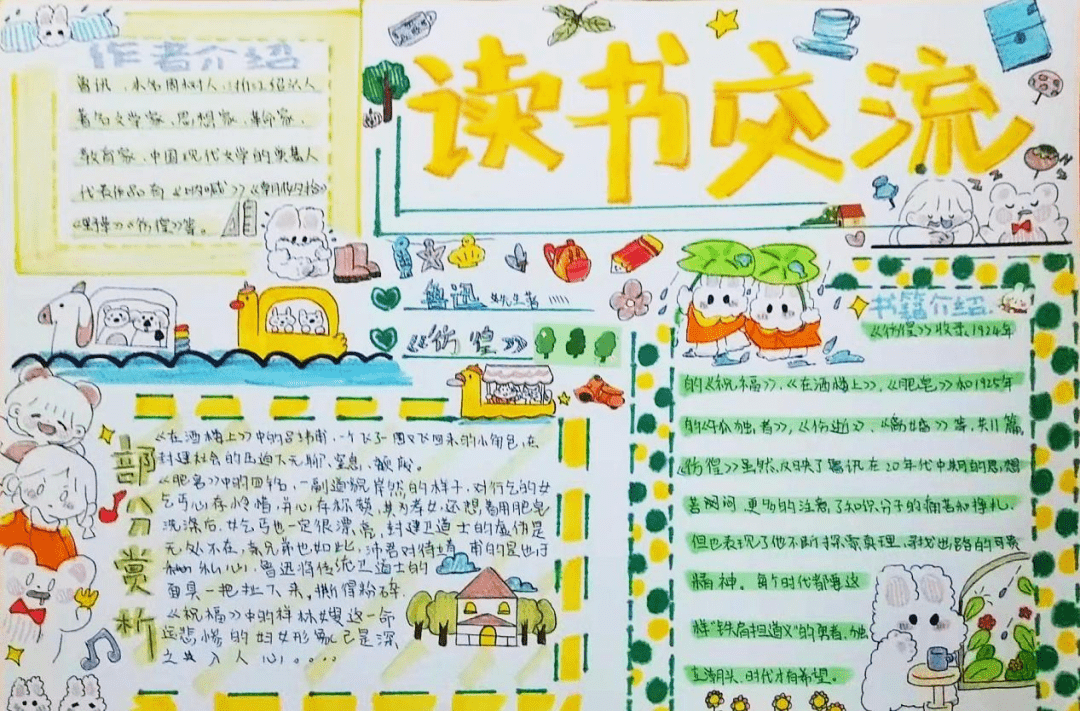 读书交流
作者介绍
鲁迅，本名周树人，浙江绍兴人
著名文学家、思想家、革命家、
教育家、中国现代文学的奠基人
代表作品有《呐喊》《朝花夕拾》
《彷徨》等。
鲁迅 先生著
《彷徨》
部分赏析
《在酒楼上》中的吕纬甫，一个飞了一圈又飞回来的小 在
封建社会的压迫下无聊、窒息、颓废。
《肥皂》中的四铭，一副道貌岸然的样子，对行乞的女
乞丐心存怜惜，并心存 孝女，还想着用肥皂
洗涤后，女乞丐也一定很漂亮，封建卫道士的虚伪是
无处不在，亲兄弟也如此，沛君对待靖甫的是也
私心，鲁迅将传统卫道士的
面具一把扯下来，撕得粉碎，
《祝福》中的祥林嫂这一命
运悲惨的妇女形象已是深
入人心。。。。
书籍介绍
《彷徨》收录1924年
的《祝福》，《在酒楼上》，《肥皂》和1925年
的《孤独者》，《伤逝》，《离婚》等，共11篇，
《彷徨》虽然反映了鲁迅在20年代中期的思想
苦闷 更多的注意了知识分子的痛苦和挣扎，
但也表现了他不断探索真理、寻找出路的可贵
精神。每个时代都要这
样“铁肩担道义”的勇者，独
立潮头，时代才有希望。